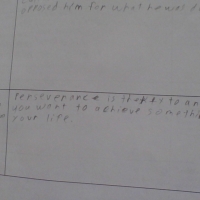 opposed him for what he was
Perseverance is the key to an
you want to achieve someth
your life.